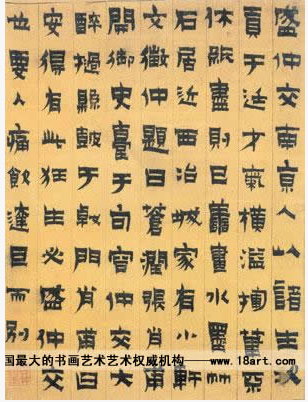 盛仲交南京人以諸生
貢于廷才氣橫溢揮筆
休能盡則已畫水
石居近西冶城家有小軒
文徵仲題曰蒼潤張肖甫
開御史臺于句容仲交大
醉撾縣鼓于門肖甫曰
安得有此狂生必盛仲交
也要入痛飲達旦而別
国最大的书画艺术艺术权威机构——www.18art.com